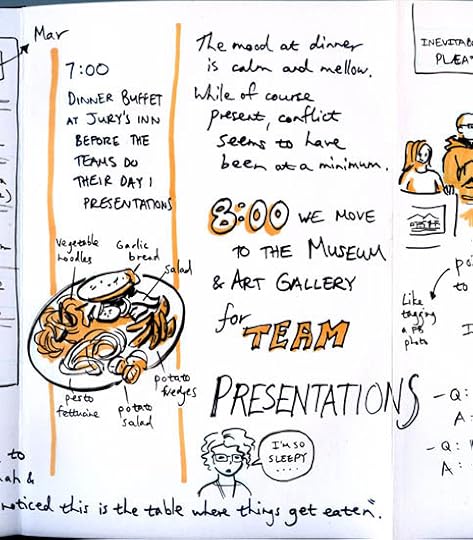 Mar
7:00
DINNER BUFFET
AT JURY'S INN
BEFORE THE
TEAMS DO
THEIR DAY 1
PRESENTATIONS
Vegetable
noodles
Garlic
bread
salad
pesto
fettucine
potato
salad
potato
wedges
The mood at dinner
is calm and mellow.
While of course
present, conflict
seems to have
been at a minimum.
8:00 WE MOVE
TO THE MUSEUM
& ART GALLERY
for TEAM
PRESENTATIONS
I'M SO
SLEEPY
....
to
noticed this is the table where things get eaten".
INEVITAB
Like
tagging
a FB
photo
to
- Q:
A:
- Q:
A: